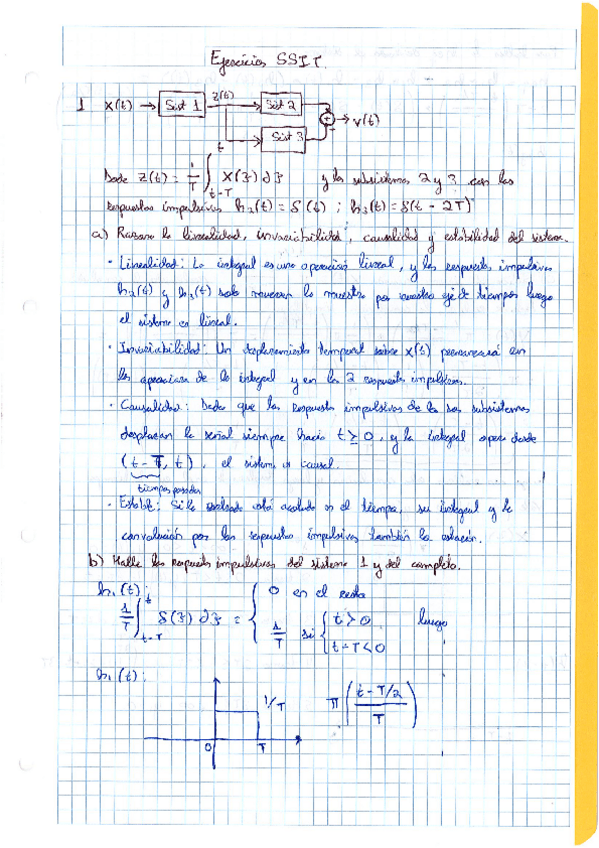 Ejercicios SSIT.
1 X(t) → Sist 1 z(t) Sist 2
+ → v(t)
-
Sist 3
Dado z(t) = 1/T ∫_{t-T}^{t} X(ξ) dξ y los subsistemas 2 y 3 con las
respuestas impulsivas h₂(t) = δ(t) ; h₃(t) = δ(t - 2T)
a) Razone la linealidad, invariabilidad, causalidad y estabilidad del sistema.
· Linealidad: La integral es una operación lineal, y las respuestas impulsivas
h₂(t) y h₃(t) solo mueven la muestra por nuestro eje de tiempos luego
el sistema es lineal.
· Invariabilidad: Un desplazamiento temporal sobre X(t) permanecerá en
las operaciones de la integral y en las 2 respuestas impulsivas.
· Causalidad: Dado que las respuestas impulsivas de los dos subsistemas
desplazan la señal siempre hacia t ≥ 0, y la integral opera desde
(t - T, t), el sistema es causal.
tiempos pasados
· Estabil: Si la entrada está acotada en el tiempo, su integral y la
convolución por las respuestas impulsivas también lo estarán.
b) Halle las respuestas impulsivas del sistema 1 y del completo.
h₁(t):
1/T ∫_{t-T}^{t} δ(ξ) dξ = { 0 en el resto
1/T si { t > 0 luego
t - T < 0
h₁(t):
1/T Π((t - T/2)/T)
0 T